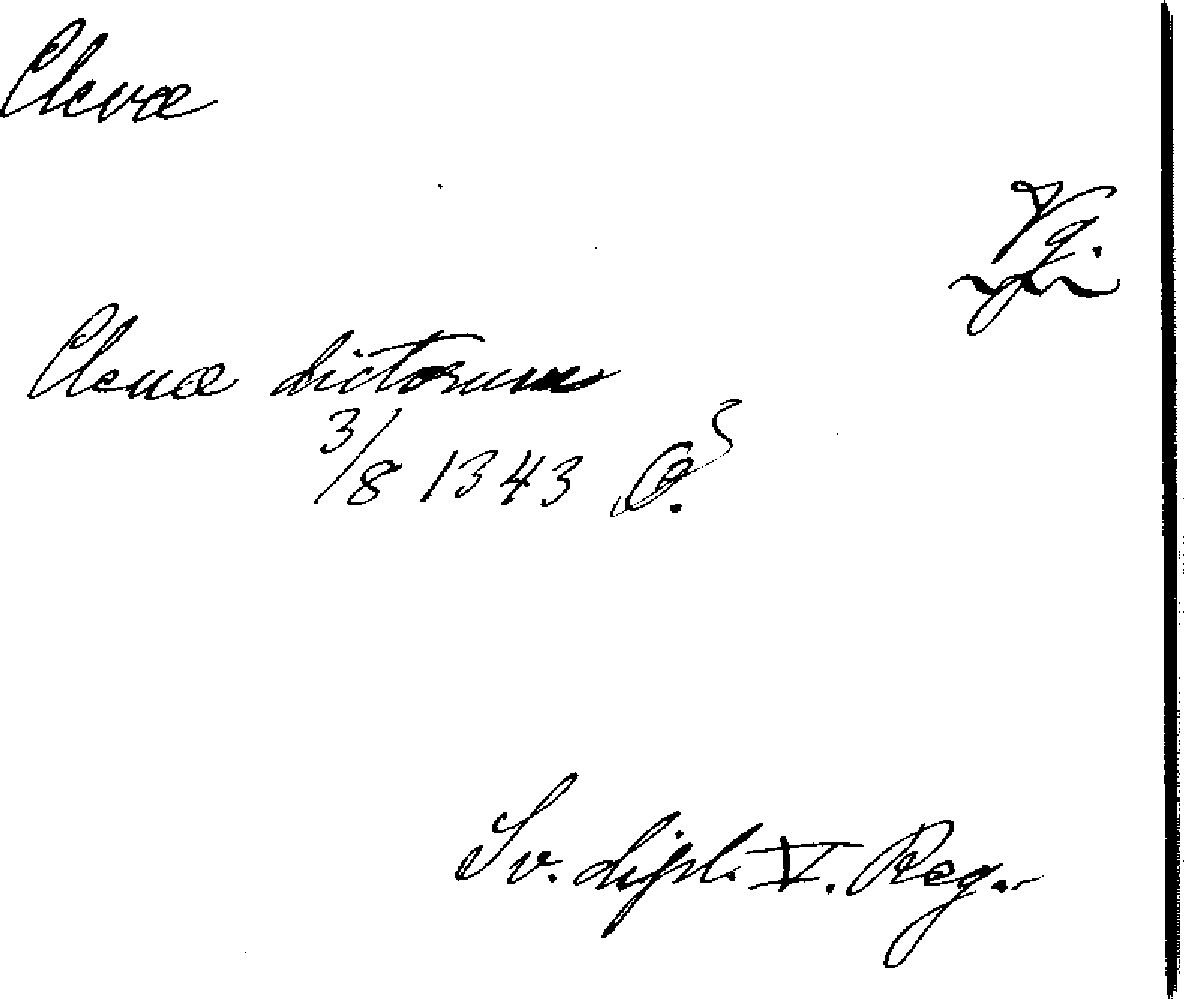 Clevæ
Vg.
Clenæ dictorum
3/8 1343 O.
Sv. dipl. V. Reg.